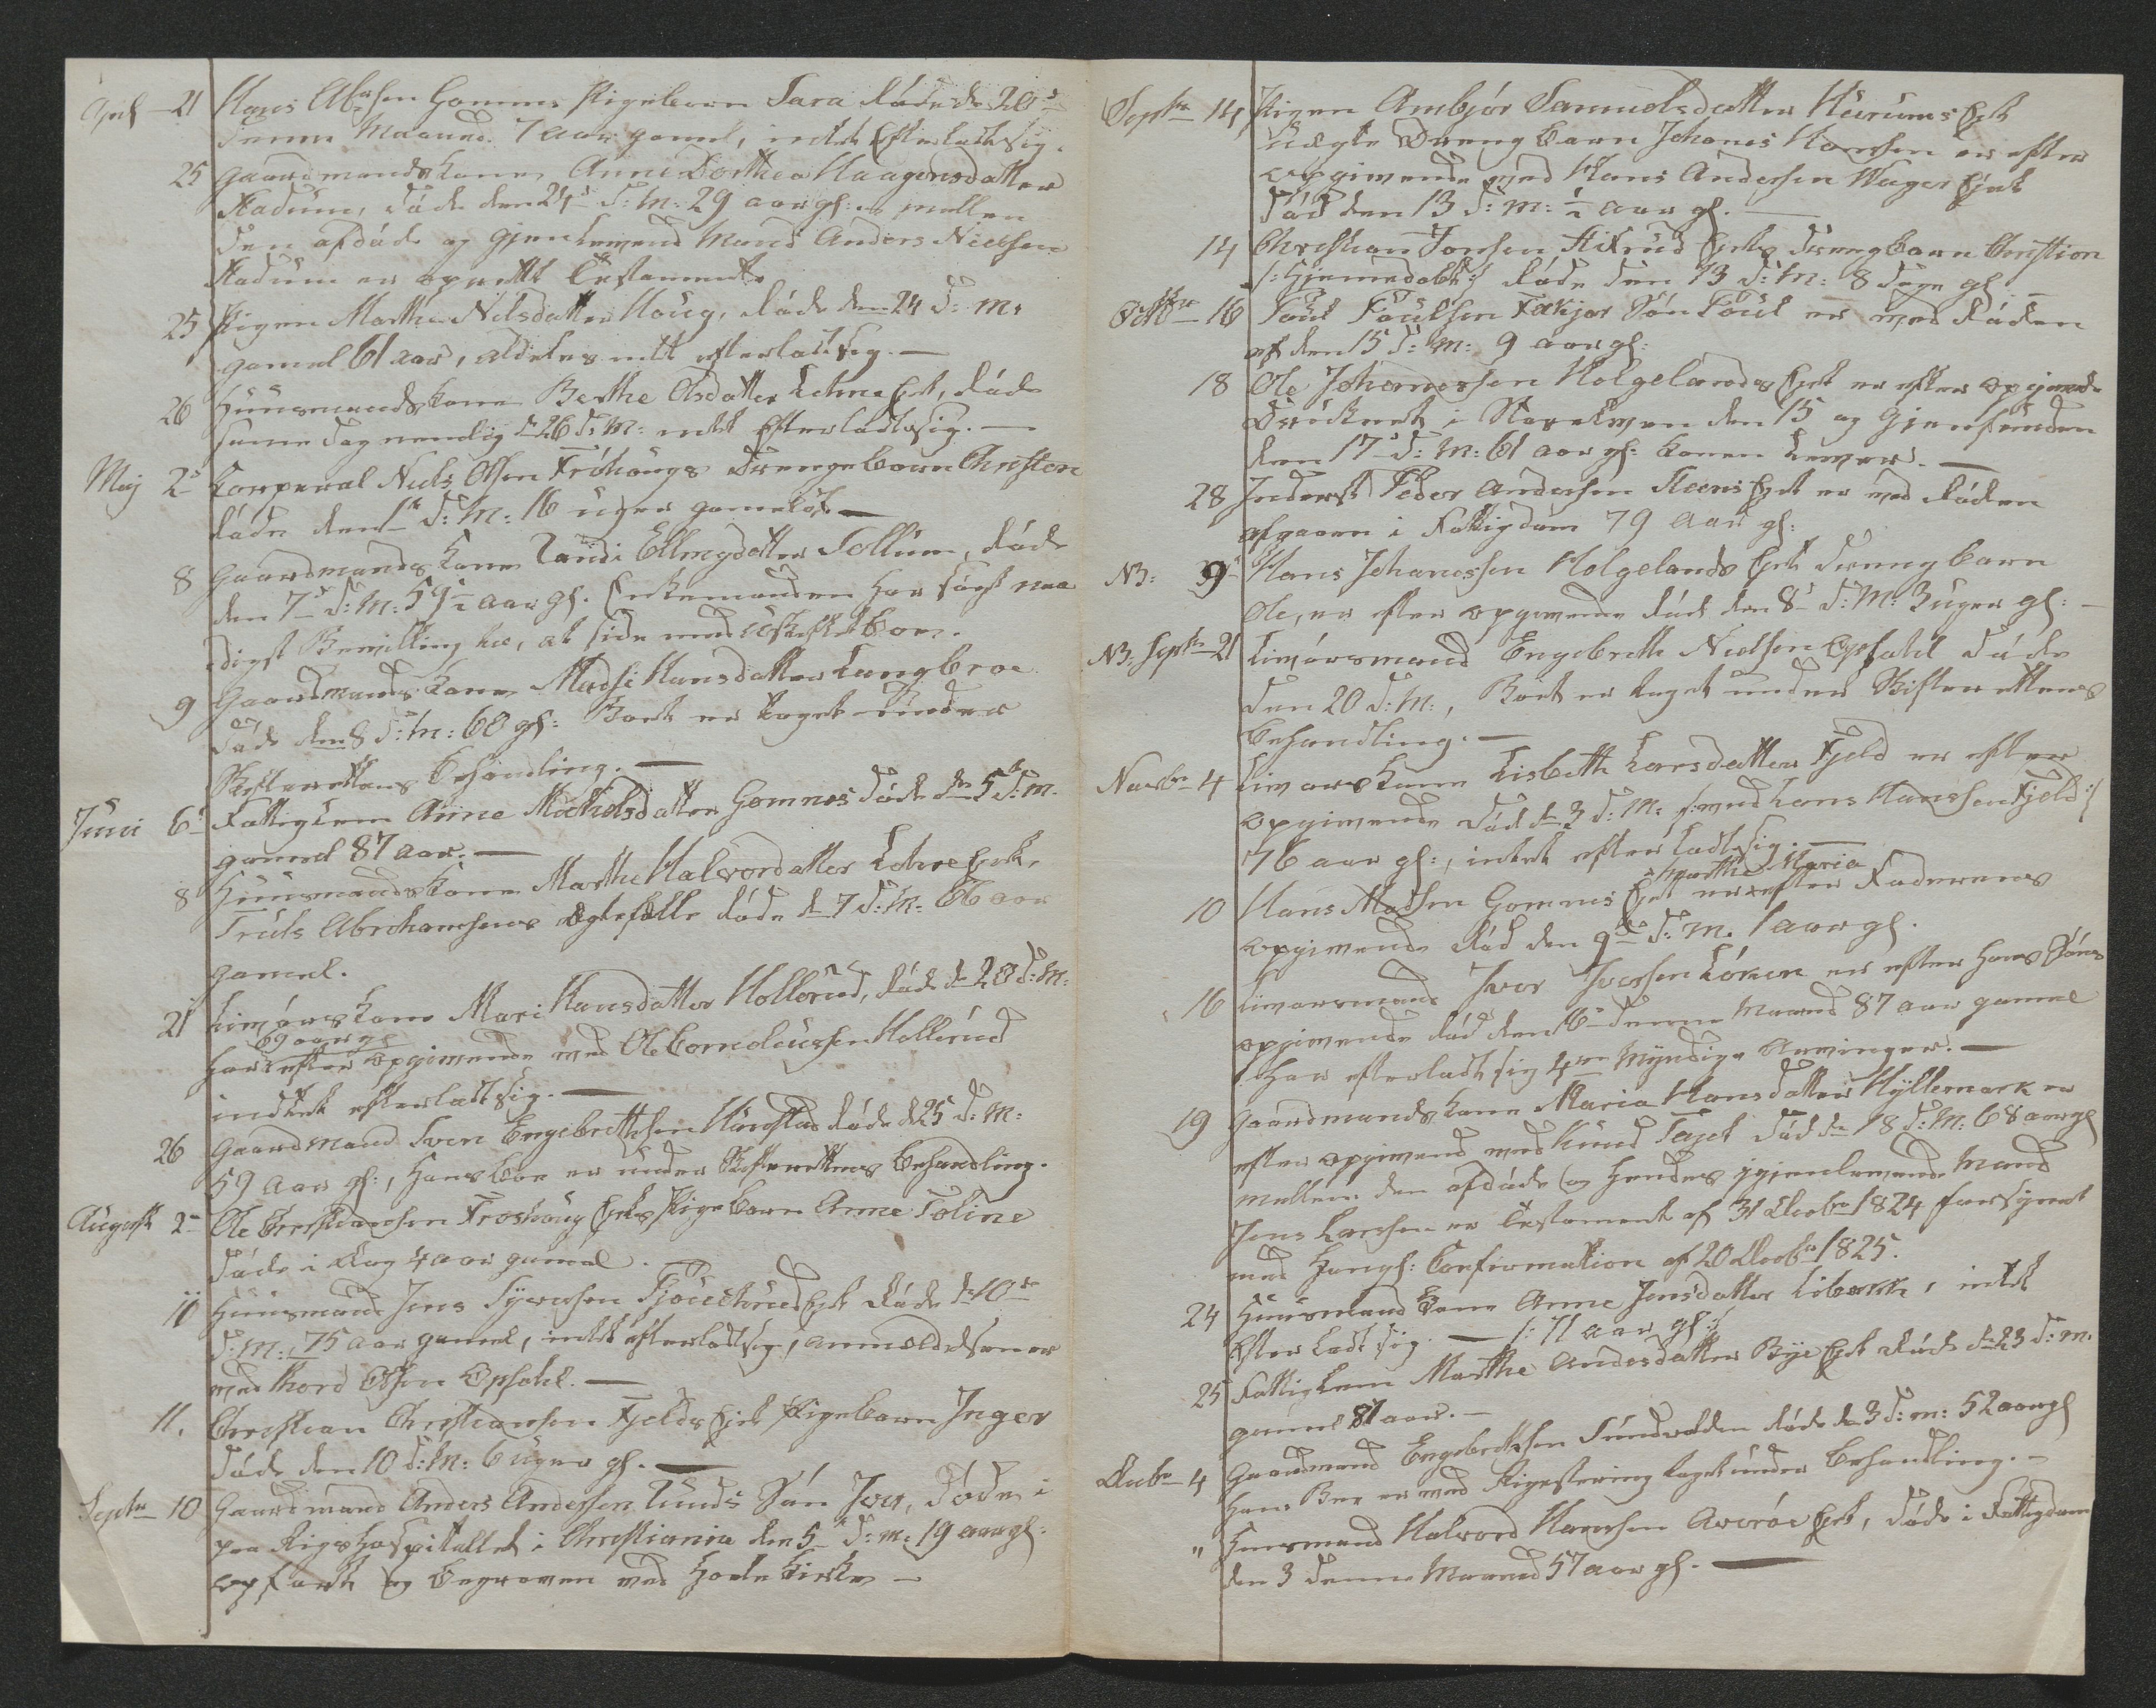 April 21 Hans Olsen Gomnes Pigebarn Sara døde d: 20de
denne Maaned. 7 aar gamel, intet Efterladt sig.
25 Gaardmands Kone Anne Dorthea Haagensdatter
Stadum, døde den 24de d: M: 29 aar gl: mellem
den afdøde og gjenlevend Mand Anders Nielsen
Stadum er oprettet Testamente
25 Pigen Marthe Nilsdatter Houg, døde den 24 d: M:
gamel 61 aar, aldeles intet efterladt sig. —
26 Huusmands Kone Berthe Olsdatter Lehne Eyet, døde
samme dag nemlig d 26 d: M: intet Efterladt sig. —
Maj 2de Corperal Niels Olsen Frøhougs Drengebarn Christen
døde den 1te d: M: 16 uger gamel —
8 Gaardmands Kone Randi Ellingsdatter Sollum, døde
den 7de d: M: 59½ aar gl. Enkemanden har søgt naa
digst Bevilling til, at side med uskiftet boe.
9 Gaardmands Kone Madhi Hansdatter Langbroe
døde den 8 d: M: 68 gl: Boet er taget under
Skifterettens behandling. —
Juni 6te Fattiglem Anne Mikkelsdatter Gomnes døde den 5te d: M.
gammel 87 aar. —
8 Huusmands Kone Marthe Halvordatter Lehne Eyet,
Truls Abrahamsens Egtefælle døde d 7 d: M: 66 aar
gamel.
21 Livørs Kone Mari Hansdatter Hollerud, døde d 20 d: M:
69 aar gl
har efter opgivende ved Ole Corneliussen Hollerud
indtet efterladt sig. —
26 Gaardmand Sven Engebrethsen Hurstad døde d 25 d: M:
59 aar gl:, Hans Boe er under Skifterettens behandling.
August 2de Ole Christiansen Froshoug Eyets Pigebarn Anne Toline
døde i Dag 4 aar gamel.
10 Huusmand Jens Syversen Eyet døde d 10de
d: M: 75 aar gamel, intet efterladt sig, anmeldelsen er
ved Thord Olsen Opsahl. —
11. Christian Christiansen Fjelds Eyet, Pigebarn Inger
døde den 10 d: M: 6 uger gl. —
Septbr 10 Gaardmand Anders Andersen Lunds Søn Iver, døde i
paa Rigshospitallet i Christiania den 5te d: M: 19 aar gl:
opført og begraven ved Hole Kirke —
Septbr 14 Pigen Ambjør Samuelsdatter Hurums Eyet
uægte Dreng barn Johanes Hansen er efter
opgivende med Hans Andersen Wager Eyet
død den 13 d: M: ½ aar gl. —
14 Christian Jonsen Eyets Drengbarn Christian
/: Hjemmedøbt :/ døde den 13 d: M: 8 dage gl. —
Octbr 16 Poul Poulsen Søn Poul er ved døden
af den 15 d: M: 9 aar gl:
18 Ole Johannesen Holgelands Eyet er efter opgivende
druknet i Storelven den 15 og Gjenfunden
den 17de d: M: 61 aar gl: Konen lever. —
28 Inderst Peder Andersen Steens Eyet er ved døden
afgaaen i Fattigdom 79 aar gl:
NB: 9de Hans Johanessen Holgelands Eyet Drengbarn
Ole, er efter opgivende død den 8de d: M: 3 uger gl: —
NB: Septbr 21 Livørsmand Engebreth Nielsen Opsahl døde
den 20 d: M:, Boet er taget under Skifterettens
behandling. —
Novbr 4 Livørs Kone Lisbeth Larsdatter Fjeld er efter
opgivende død d 3 d: M: /: ved Lars Hansen Fjeld :/
76 aar gl:, intet efterladt sig. —
Marthe Maria
10 Hans Madsen Gomnes Eyet er efter Faderens
opgivende død den 9de d: M. 1 aar gl.
16 Livørsmand Iver Iversen Løken er efter hans Søns
opgivende død den 16de denne Maaned 87 aar gamel
har efterladt sig 4re Myndige Arvinger. —
19 Gaardmands Kone Maria Hansdatter Hyllemark er
efter opgivend ved Knud Taget død d 18 d: M: 68 aar gl
mellem den afdøde og Hendes igjenlevende Mand
Jens Larsen er Testament af 31 Decbr 1824 forsynet
med Kongl: Confirmation af 20 Decbr 1825.
24 Huusmand Kone Anne Jensdatter Libakke, intet
Efterladt sig. — /: 71 aar gl :/
25 Fattiglem Marthe Andersdatter Bye Eyet døde d 23 d: M.
gamel 81 aar. —
Decbr 4 Gaardmand Engebrethsen Sundvolden døde d 3 d: m: 52 aar gl
Hans Boe er ved Registering taget under behandling. —
" Huusmand Halvord Hansen Averøe Eyet, døde i Fattigdom
den 3 denne Maaned 57 aar gl. —